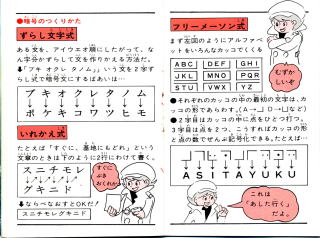 ●暗号のつくりかた
ずらし文字式
ある文を、アイウエオ順にしたがって、な
ん字分かずらして文を作りかえる方法だ。
↓「ブキ オクレ タノム」という文を2字ず
らし式で暗号文にするばあいは…
ブキオクレタノム
ボケキコワツヒモ
いれかえ式
たとえば「すぐに、墓地にもどれ」という
文章のときは下のように2行にわけて書く。
スニチモレ
グキニド
↓ならべなおすとOKだ!
スニチモレグキニド
すぐに
ぶき
おくれか
フリーメーソン式
まず左図のようにアルファベ
ットをいろんなカッコでくくる
ABC DEF GHI
JKL MNO PQR
STU VWX YZ
むずか
しいぞ
●それぞれのカッコの中の最初の文字は、カ
ッコの形であらわす。(A→」D→凵など)
●2字目はカッコの中に点をひとつ打つ。
3字目は点を2つ、こうすればカッコの形
と点の数でぜんぶ記号化できる。たとえば…
ASITAYUKU
これは
「あした行く」
だよ。